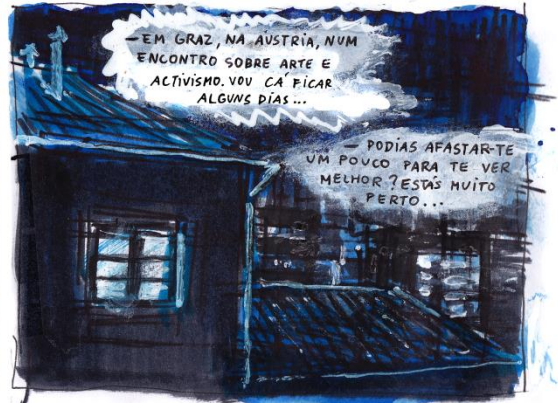 —EM GRAZ, NA ÁUSTRIA, NUM
ENCONTRO SOBRE ARTE E
ACTIVISMO. VOU CÁ FICAR
ALGUNS DIAS...
— PODIAS AFASTAR-TE
UM POUCO PARA TE VER
MELHOR? ESTÁS MUITO
PERTO...